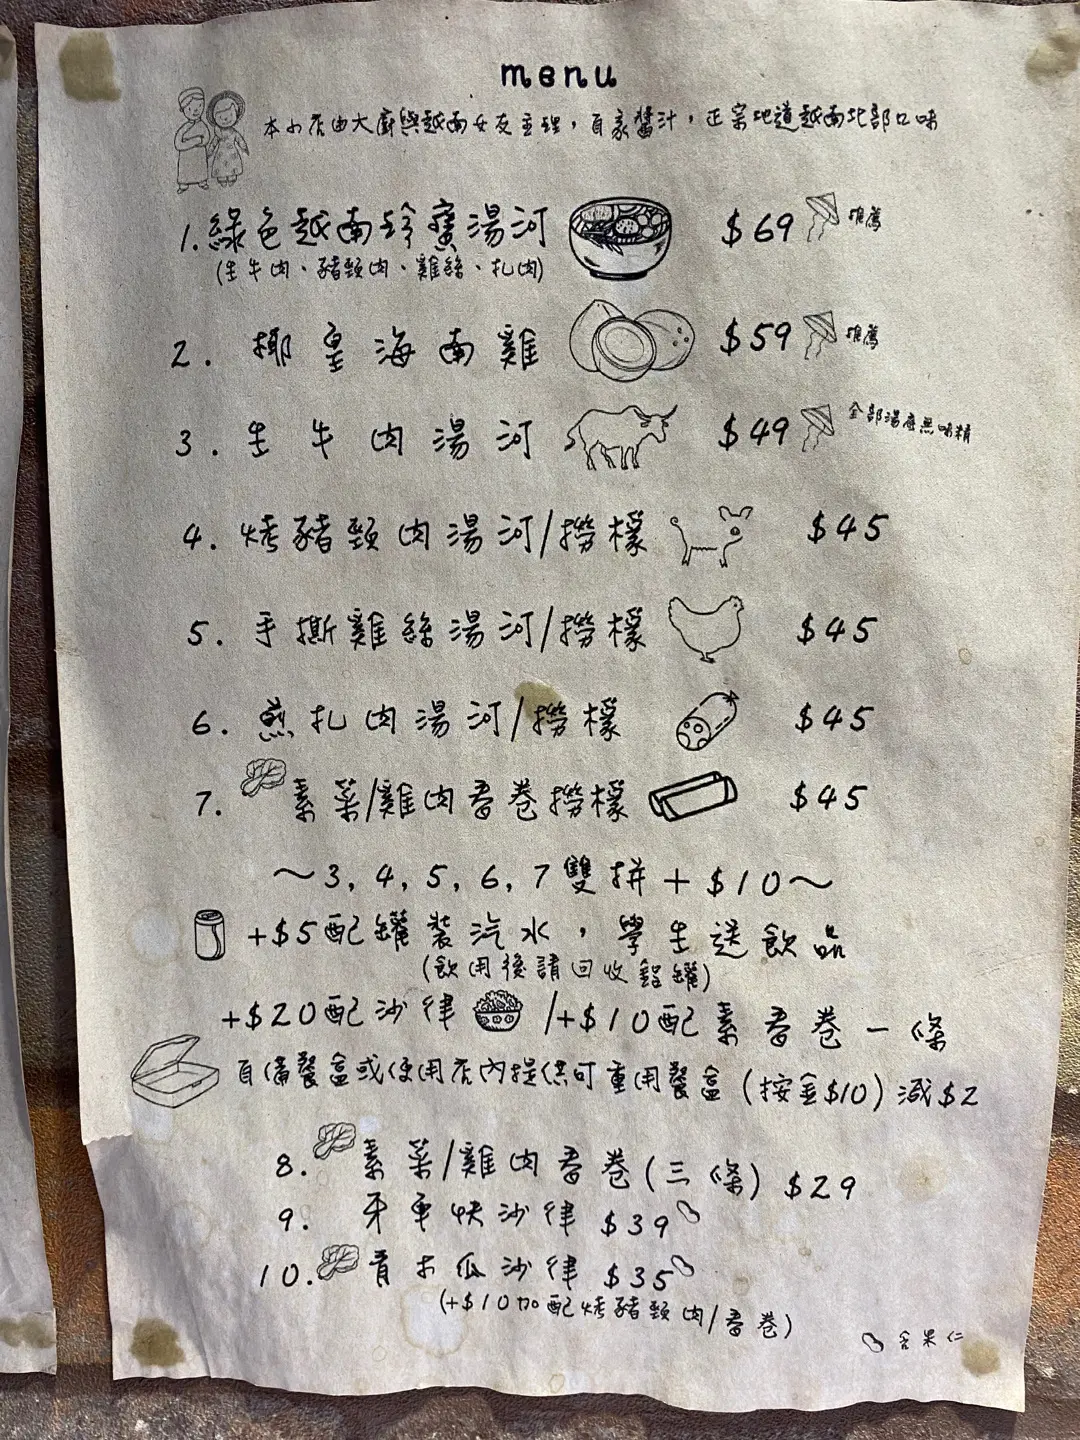 menu
本小店由大廚與越南女友主理，自家醬汁，正宗地道越南北部口味
1.綠色越南珍寶湯河 $69 推薦
(生牛肉、豬頸肉、雞絲、扎肉)
2. 椰皇海南雞 $59 推薦
3. 生牛肉湯河 $49 全部湯底無味精
4. 烤豬頸肉湯河/撈檬 $45
5. 手撕雞絲湯河/撈檬 $45
6. 煎扎肉湯河/撈檬 $45
7. 素菜/雞肉春卷撈檬 $45
～3, 4, 5, 6, 7雙拼＋$10～
+$5配罐裝汽水，學生送飲品
(飲用後請回收鋁罐)
+$20配沙律 /+$10配素春卷一條
自備餐盒或使用店內提供可重用餐盒(按金$10)減$2
8. 素菜/雞肉春卷(三條) $29
9. 牙車快沙律 $39
10. 青木瓜沙律 $35
(+$10加配烤豬頸肉/春卷)
含果仁